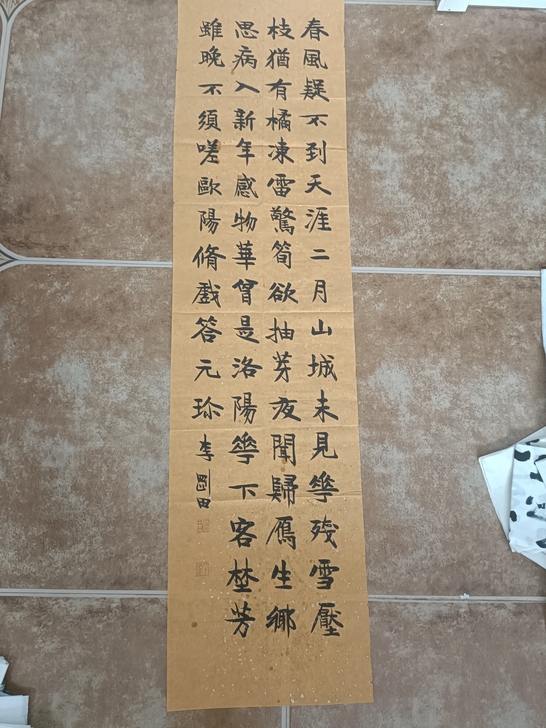 春風疑不到天涯二月山城未見華殘雪壓
枝猶有橘凍雷驚筍欲抽芽夜聞歸鴈生鄉
思病入新年感物華曾是洛陽華下客埜芳
雖晚不須嗟歐陽脩戲答元珍李剛田